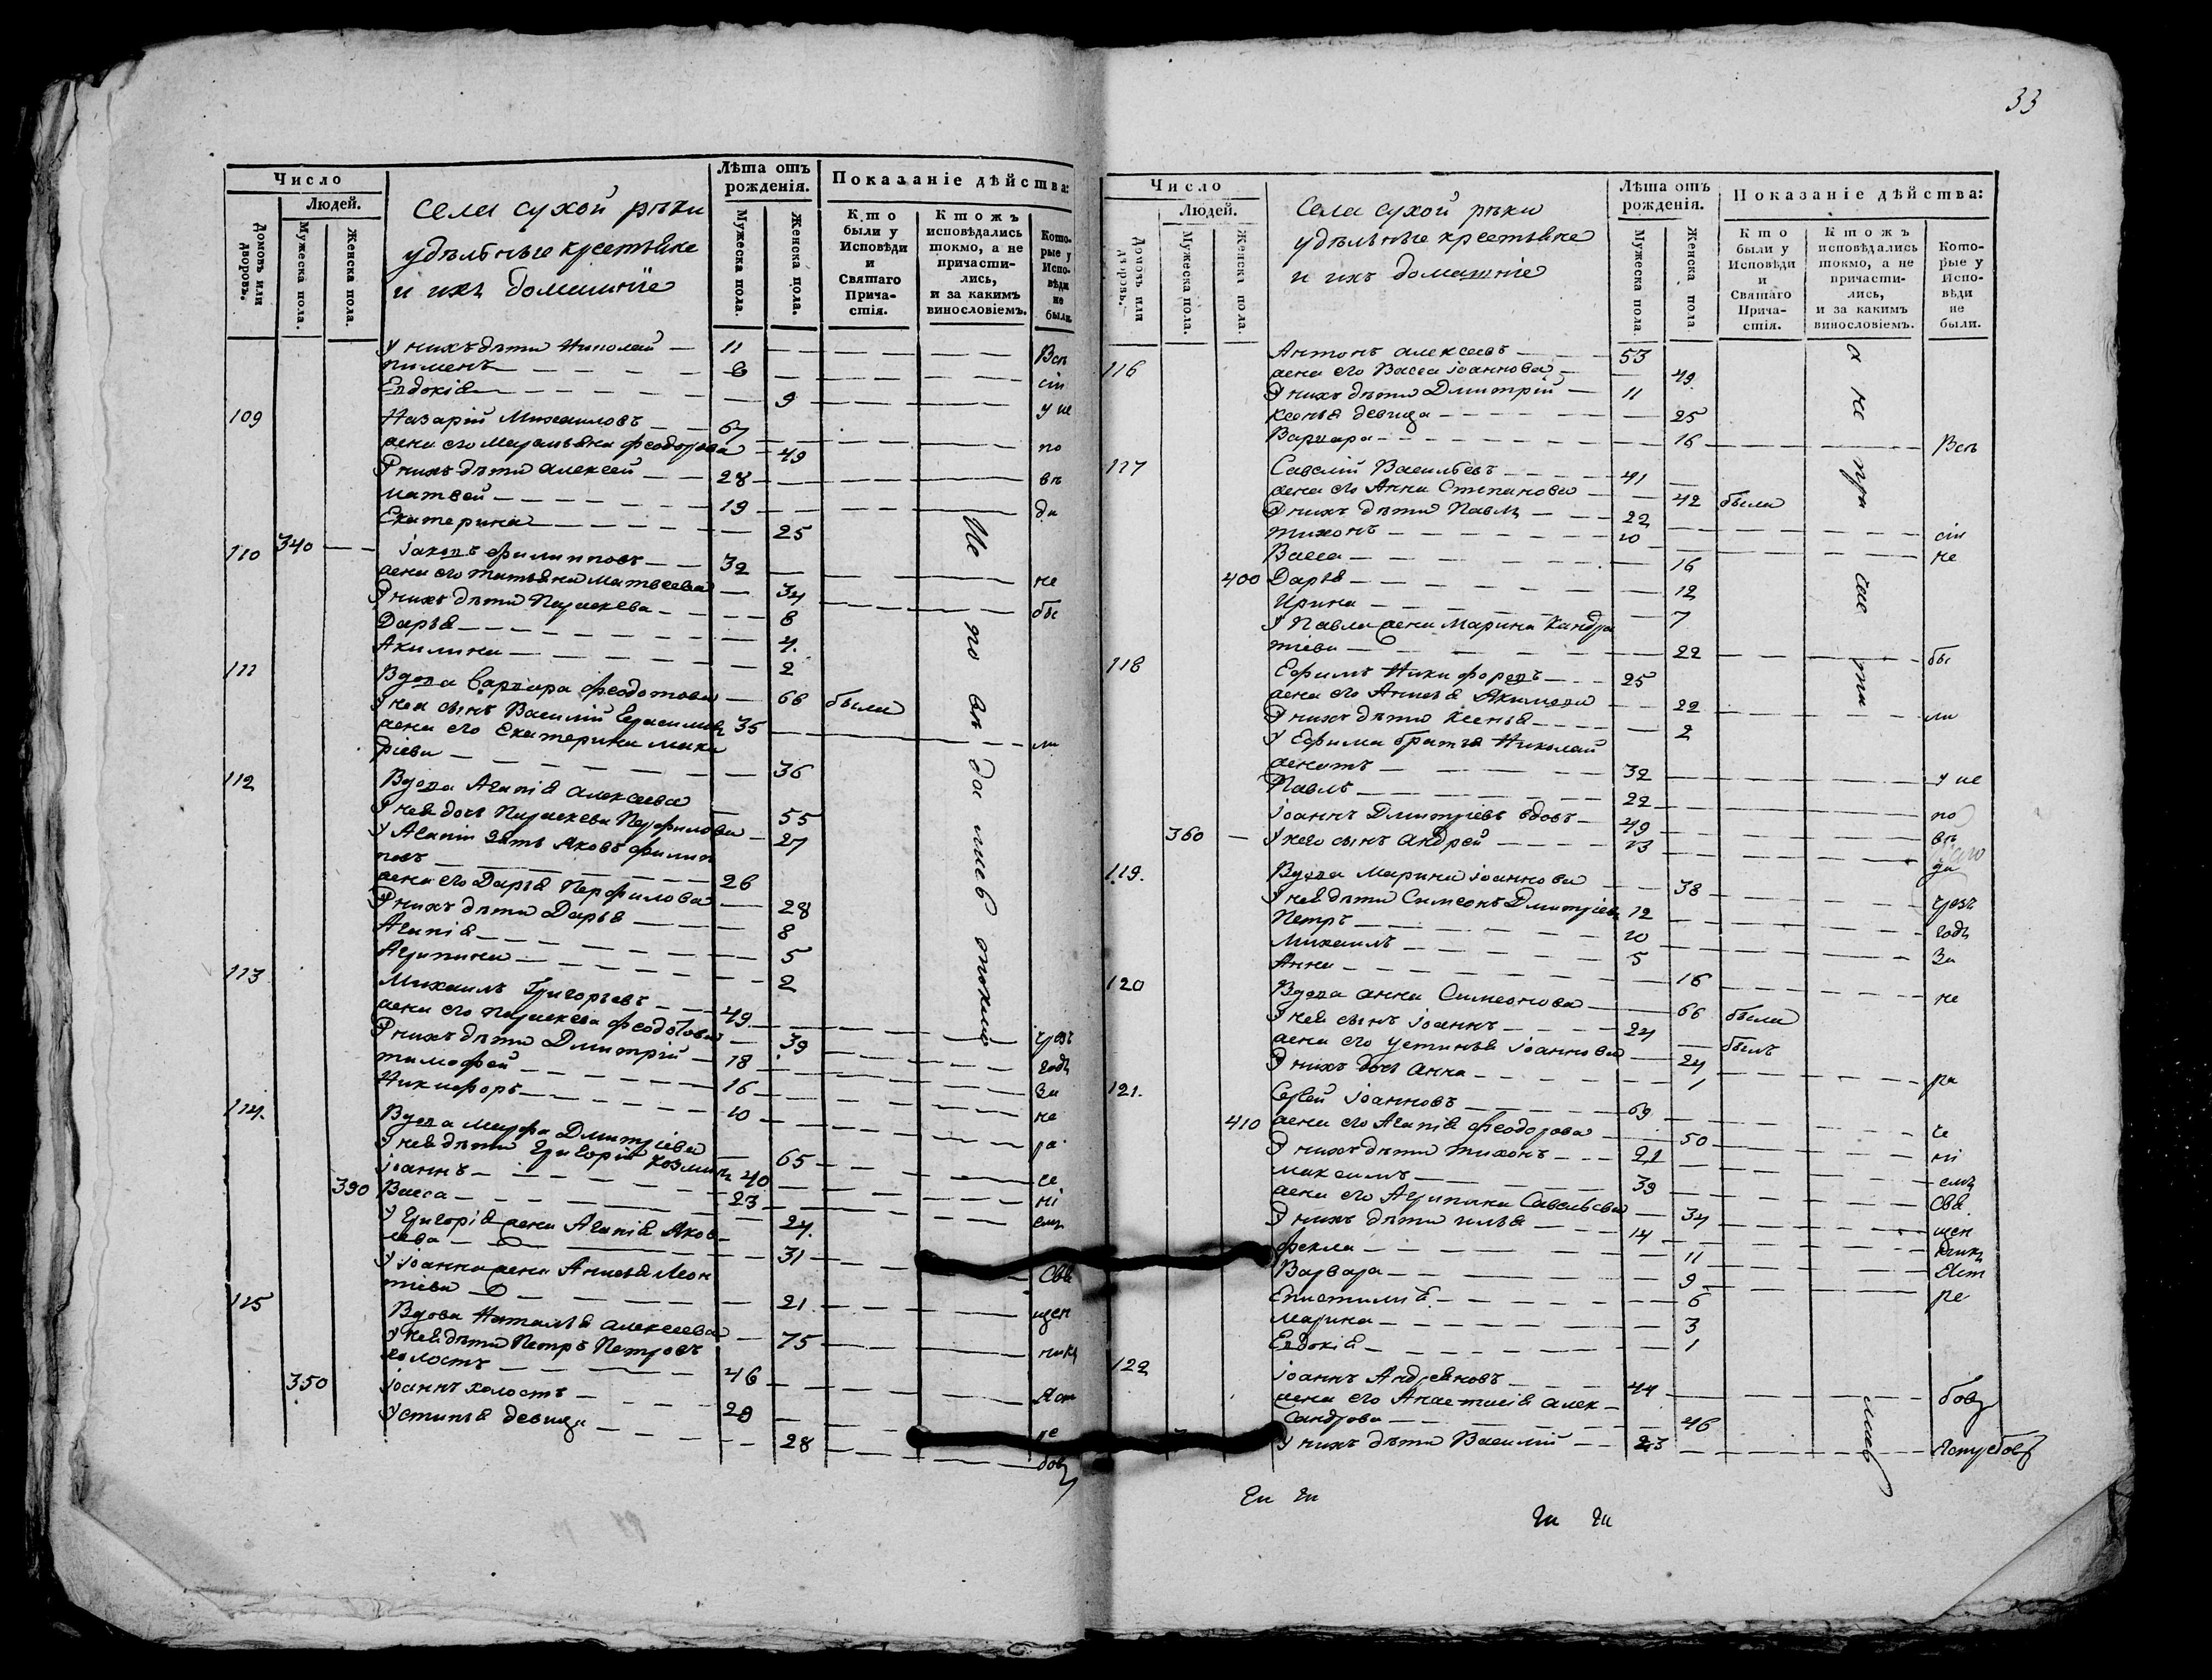 Число
Людей.
Домовъ или дворовъ.
Мужеска пола.
Женска пола.
Села сухой рѣки
удѣльные крестьяне
и ихъ домашніе
Лѣта отъ рожденія.
Мужеска пола.
Женска пола.
Показаніе дѣйства:
Кто были у Исповѣди и Святаго Причастія.
Ктожъ исповѣдались токмо, а не причастились, и за какимъ винословіемъ.
Которые у Исповѣди не были.
У нихъ дѣти Николай 11 Всѣ
Пименъ 6 сіи
Евдокія 9 у ис
109 Назарій Михаиловъ 67
жена его Маремьяна Феодорова 49 по
У нихъ дѣти Алексей 28 вѣ
Матвей 19 ди
Екатерина 25
110 340 Іаковъ Филипповъ 32
жена его Татьяна Матвеева 34 не
У нихъ дѣти Параскева 8 бы
Дарья 4
Акилина 2
111 Вдова Варвара Феодотова 66 была
У нея сынъ Василій Герасимовъ 35
жена его Екатерина Мака ли
ріева 36
112 Вдова Агапія Алексеева 55
У нея дочь Параскева Перфилова 27
У Агапіи зять Яковъ Филип
повъ 26
жена его Дарья Перфилова 28
У нихъ дѣти Дарья 8
Агапія 5
Агрипина 2
113 Михаилъ Григорьевъ 49
жена его Параскева Феодотова 39 чрезъ
У нихъ дѣти Дмитрій 18 годъ
Тимофей 16 За
Никифоръ 10 не
114. Вдова Марфа Дмитріева 65 ра
У нея дѣти Григорій Козминъ 40 се
Іоаннъ 23 ні
390 Васса 24 емъ
У Григорія жена Агапія Яков
лева 31
У Іоанна жена Анисья Леон Свя
тіева 21 щен
115 Вдова Наталья Алексеева 75
У нея дѣти Петръ Петровъ никъ
холостъ 46
350 Іоаннъ холостъ 20 Яст
Устинья девица 28 ре
бовъ
Не по вѣ да лись токмо
33
Число
Людей.
Домовъ или дворовъ.
Мужеска пола.
Женска пола.
Села сухой рѣки
удѣльные крестьяне
и ихъ домашніе
Лѣта отъ рожденія.
Мужеска пола.
Женска пола
Показаніе дѣйства:
Кто были у Исповѣди и Святаго Причастія.
Ктожъ исповѣдались токмо, а не причастились, и за какимъ винословіемъ.
Которые у Исповѣди не были.
116 Антонъ Алексеевъ 53
жена его Васса Іоаннова 49.
У нихъ дѣти Дмитрій 11
Ксенья девица 25
Варвара 16 Всѣ
117 Савелій Васильевъ 41
жена его Анна Степанова 42 была
У нихъ дѣти Павлъ 22
Тихонъ 10 сіи
Васса 16 не
400 Дарья 12
Ирина 7
У Павла жена Марина Кандра
тіева 22 бы
118 Ефимъ Никифоровъ 25
жена его Анисья Якимова 22
У нихъ дѣти Ксенья 2 ли
У Ефима братья Николай
женатъ 32 у ис
Павлъ 22
Іоаннъ Дмитріевъ вдовъ 49 по
360 У него сынъ Андрей 13 вѣ
119. Вдова Марина Іоаннова 38 ди
У нея дѣти Симеонъ Дмитріевъ 12 чрезъ
Петръ 10 годъ
Михаилъ 5 За
Анна 16
120 Вдова Анна Симеонова 66 была не
У нея сынъ Іоаннъ 24 былъ
жена его Устинья Іоаннова 24
У нихъ дочь Анна 1 ра
121. Сергей Іоанновъ 69
410 жена его Агапія Феодорова 50 се
У нихъ дѣти Тихонъ 21 ні
Максимъ 39 емъ
жена его Агрипина Савельева 34 Свя
У нихъ дѣти Илья 14 щен
Фекла 11 никъ
Варвара 9 Яст
Епистимія 6 ре
Марина 3
Евдокія 1
122 Іоаннъ Андреяновъ 44
жена его Анастасія Алек бовъ
сандрова 46
У нихъ дѣти Василій 23 Ястребовъ
а не при час ти лись